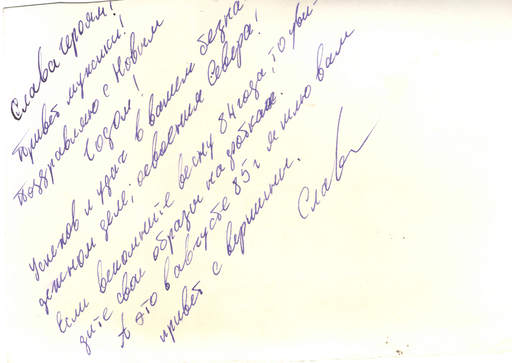 Слава героям!
Привет мужики!
Поздравляю с Новым
Годом!
Успехов и удач в вашем безна-
дежном деле, освоении Севера!
Если вспомните весну 84 года, то уви-
дите свои образы на фотках.
А это в августе 85 г я шлю вам
привет с вершины.
Слава